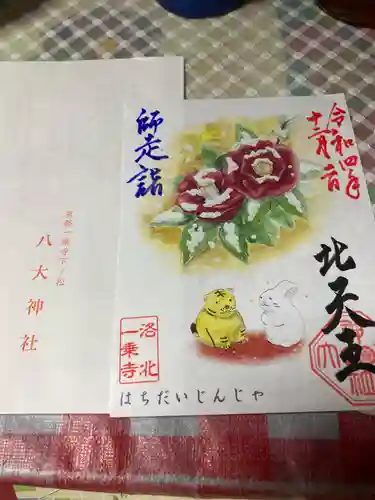 令和四年
十二月一日
北天王
師走詣
洛北
一乗寺
はちだいじんじゃ
京都一乗寺下り松
八大神社